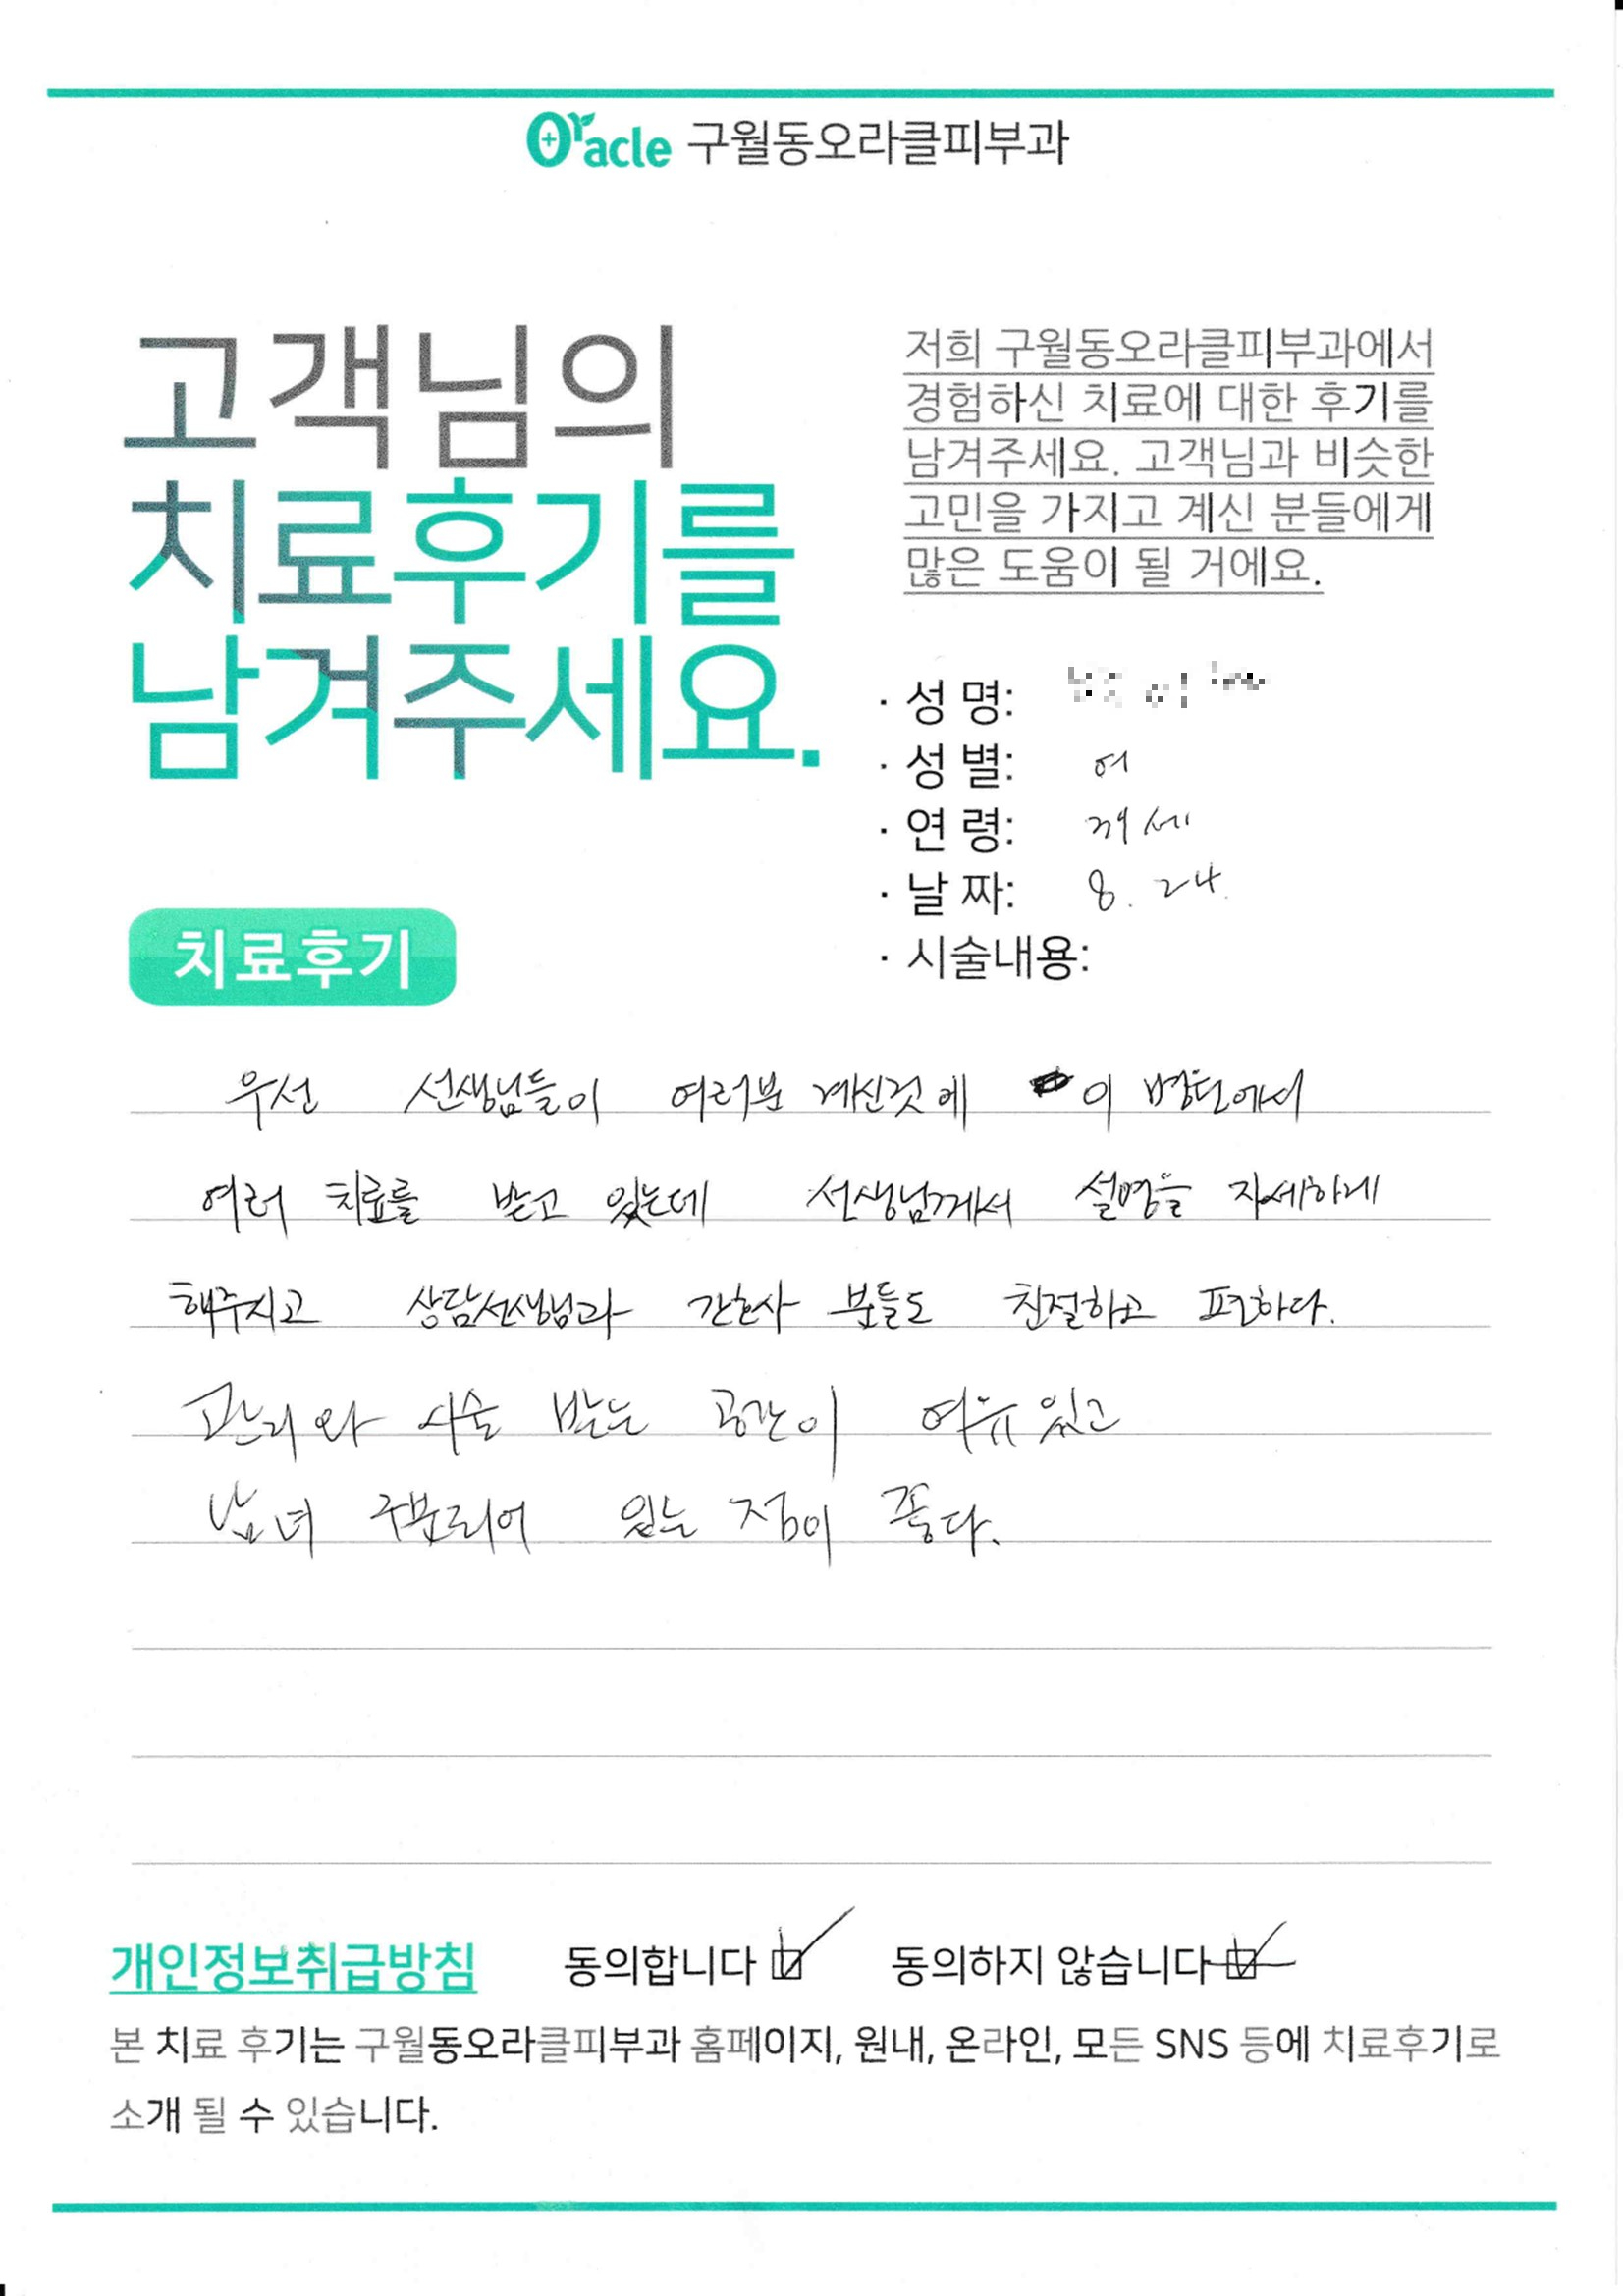 Oracle 구월동오라클피부과
고객님의
치료후기를
남겨주세요.
저희 구월동오라클피부과에서
경험하신 치료에 대한 후기를
남겨주세요. 고객님과 비슷한
고민을 가지고 계신 분들에게
많은 도움이 될 거에요.
· 성 명:
· 성 별: 여
· 연 령: 세
· 날 짜: 8. 24.
· 시술내용:
치료후기
우선 선생님들이 여러분 계신것에 이 병원에서
여러 치료를 받고 있는데 선생님께서 설명을 자세하게
해주시고 상담선생님과 간호사 분들도 친절하고 편하다.
관리와 시술 받는 공간이 여유있고
남녀 구분되어 있는 점이 좋다.
개인정보취급방침 동의합니다 동의하지 않습니다
본 치료 후기는 구월동오라클피부과 홈페이지, 원내, 온라인, 모든 SNS 등에 치료후기로
소개 될 수 있습니다.